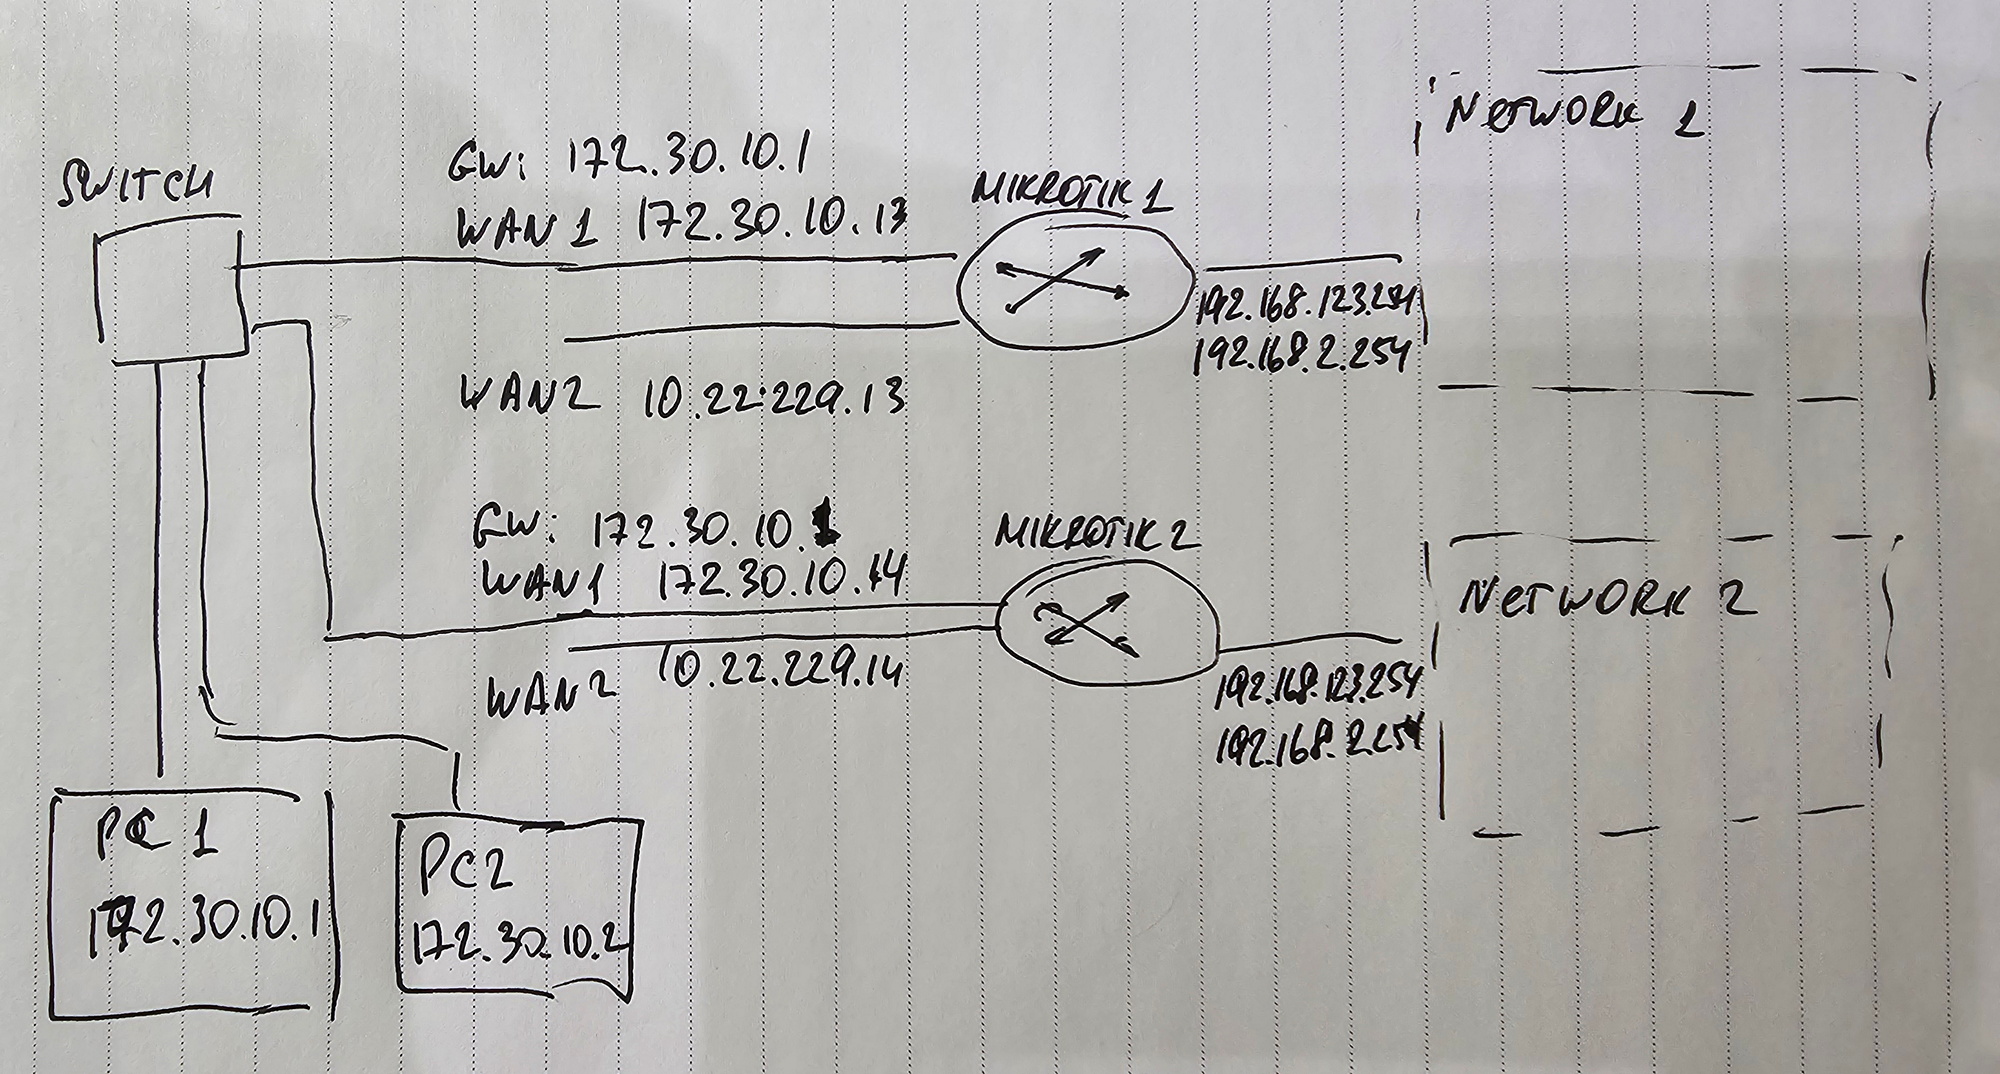 SWITCH
GW: 172.30.10.1
WAN1 172.30.10.13
WAN2 10.22.229.13
MIKROTIK 1
192.168.123.254
192.168.2.254
NETWORK 1
GW: 172.30.10.1
WAN1 172.30.10.14
WAN2 10.22.229.14
MIKROTIK 2
192.168.123.254
192.168.2.254
NETWORK 2
PC 1
172.30.10.1
PC2
172.30.10.2